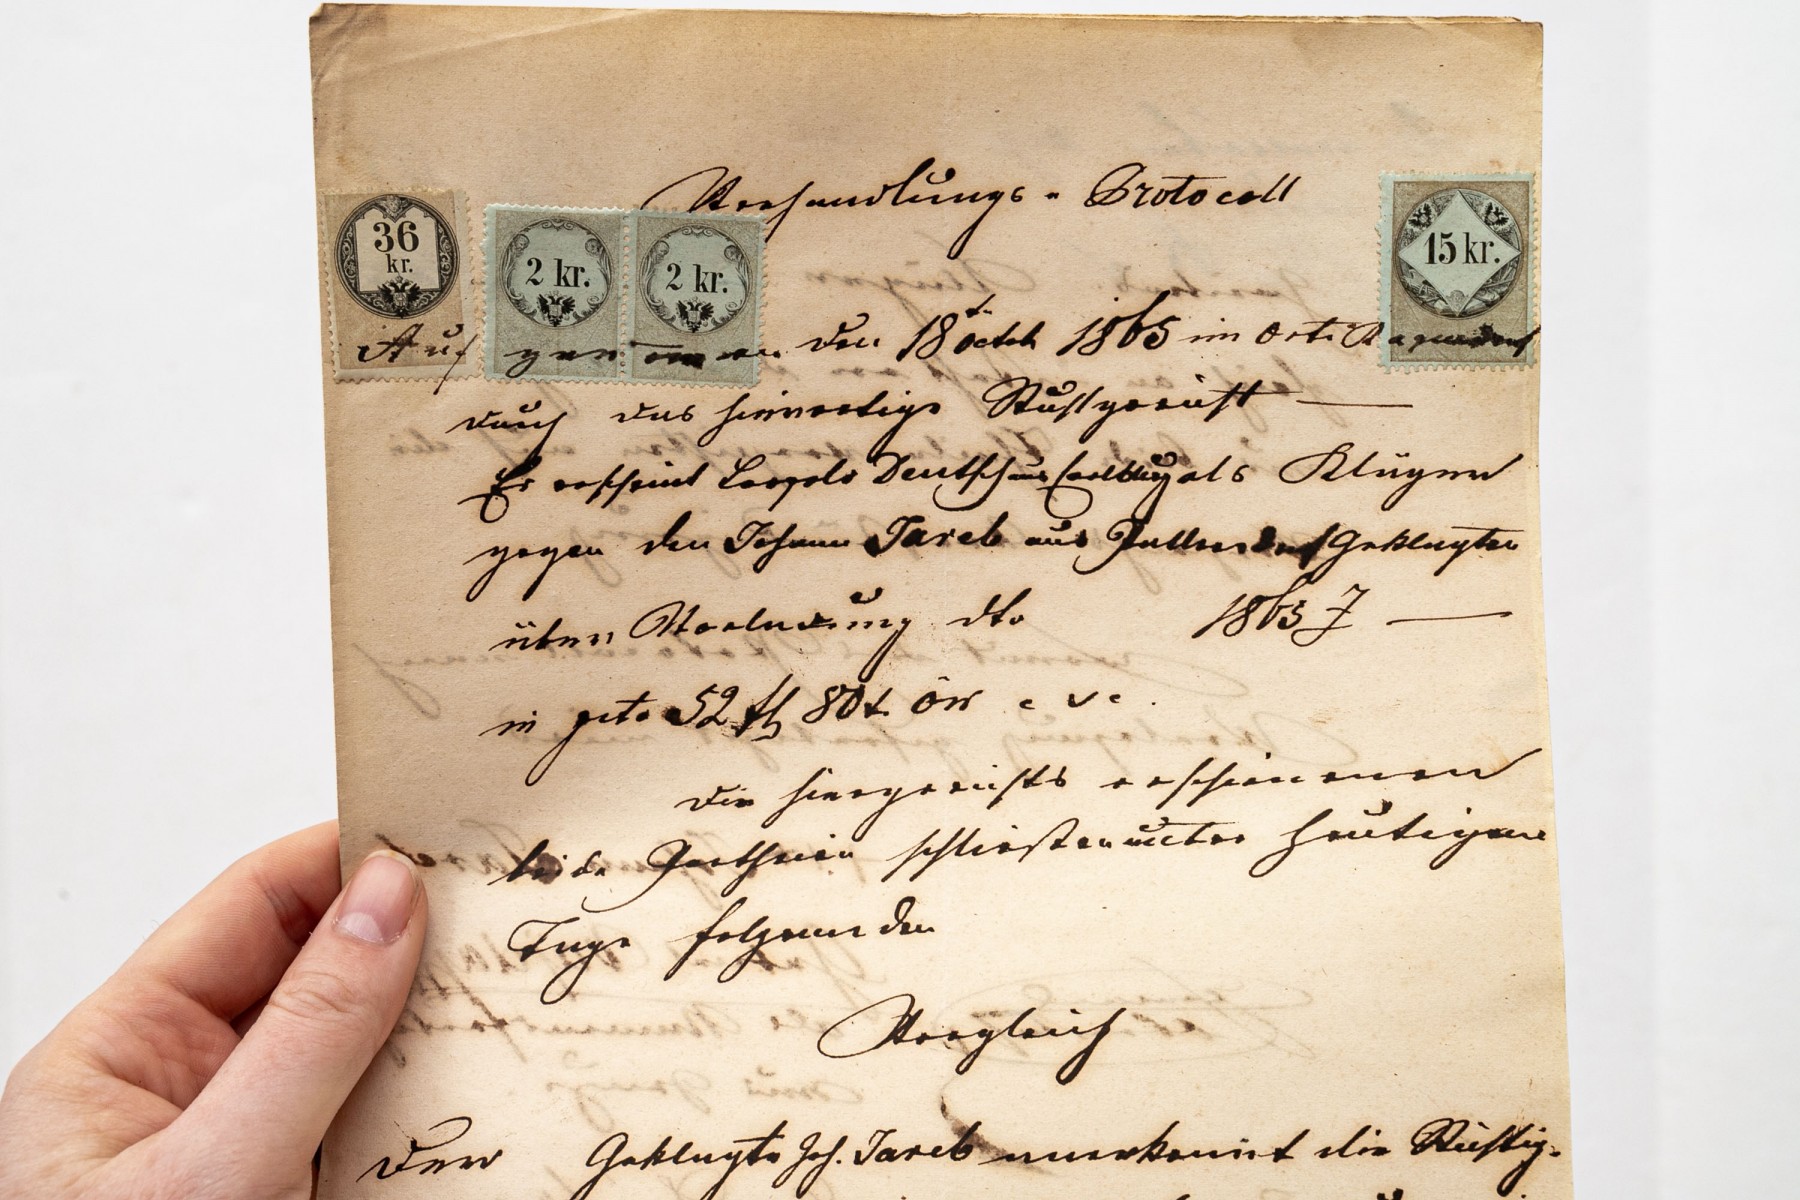 Verhandlungs-Protocoll
36 kr.
2 kr.
2 kr.
15 kr.
Aufgenommen den 18t Octob 1865 im Orte
durch das hierortige
Er erscheint Leopold Deutsch aus als Kläger
gegen den Johann Jareb aus Geklagten
über Vorladung dto 1865 Z —
in pcto 52 fl 80 x öW c v c.
Die hiergerichts erschienenen
beide Partheien schließen unter heutigem
Tage folgenden
Vergleich
Der Geklagte Joh. Jareb anerkennt die Richtig-